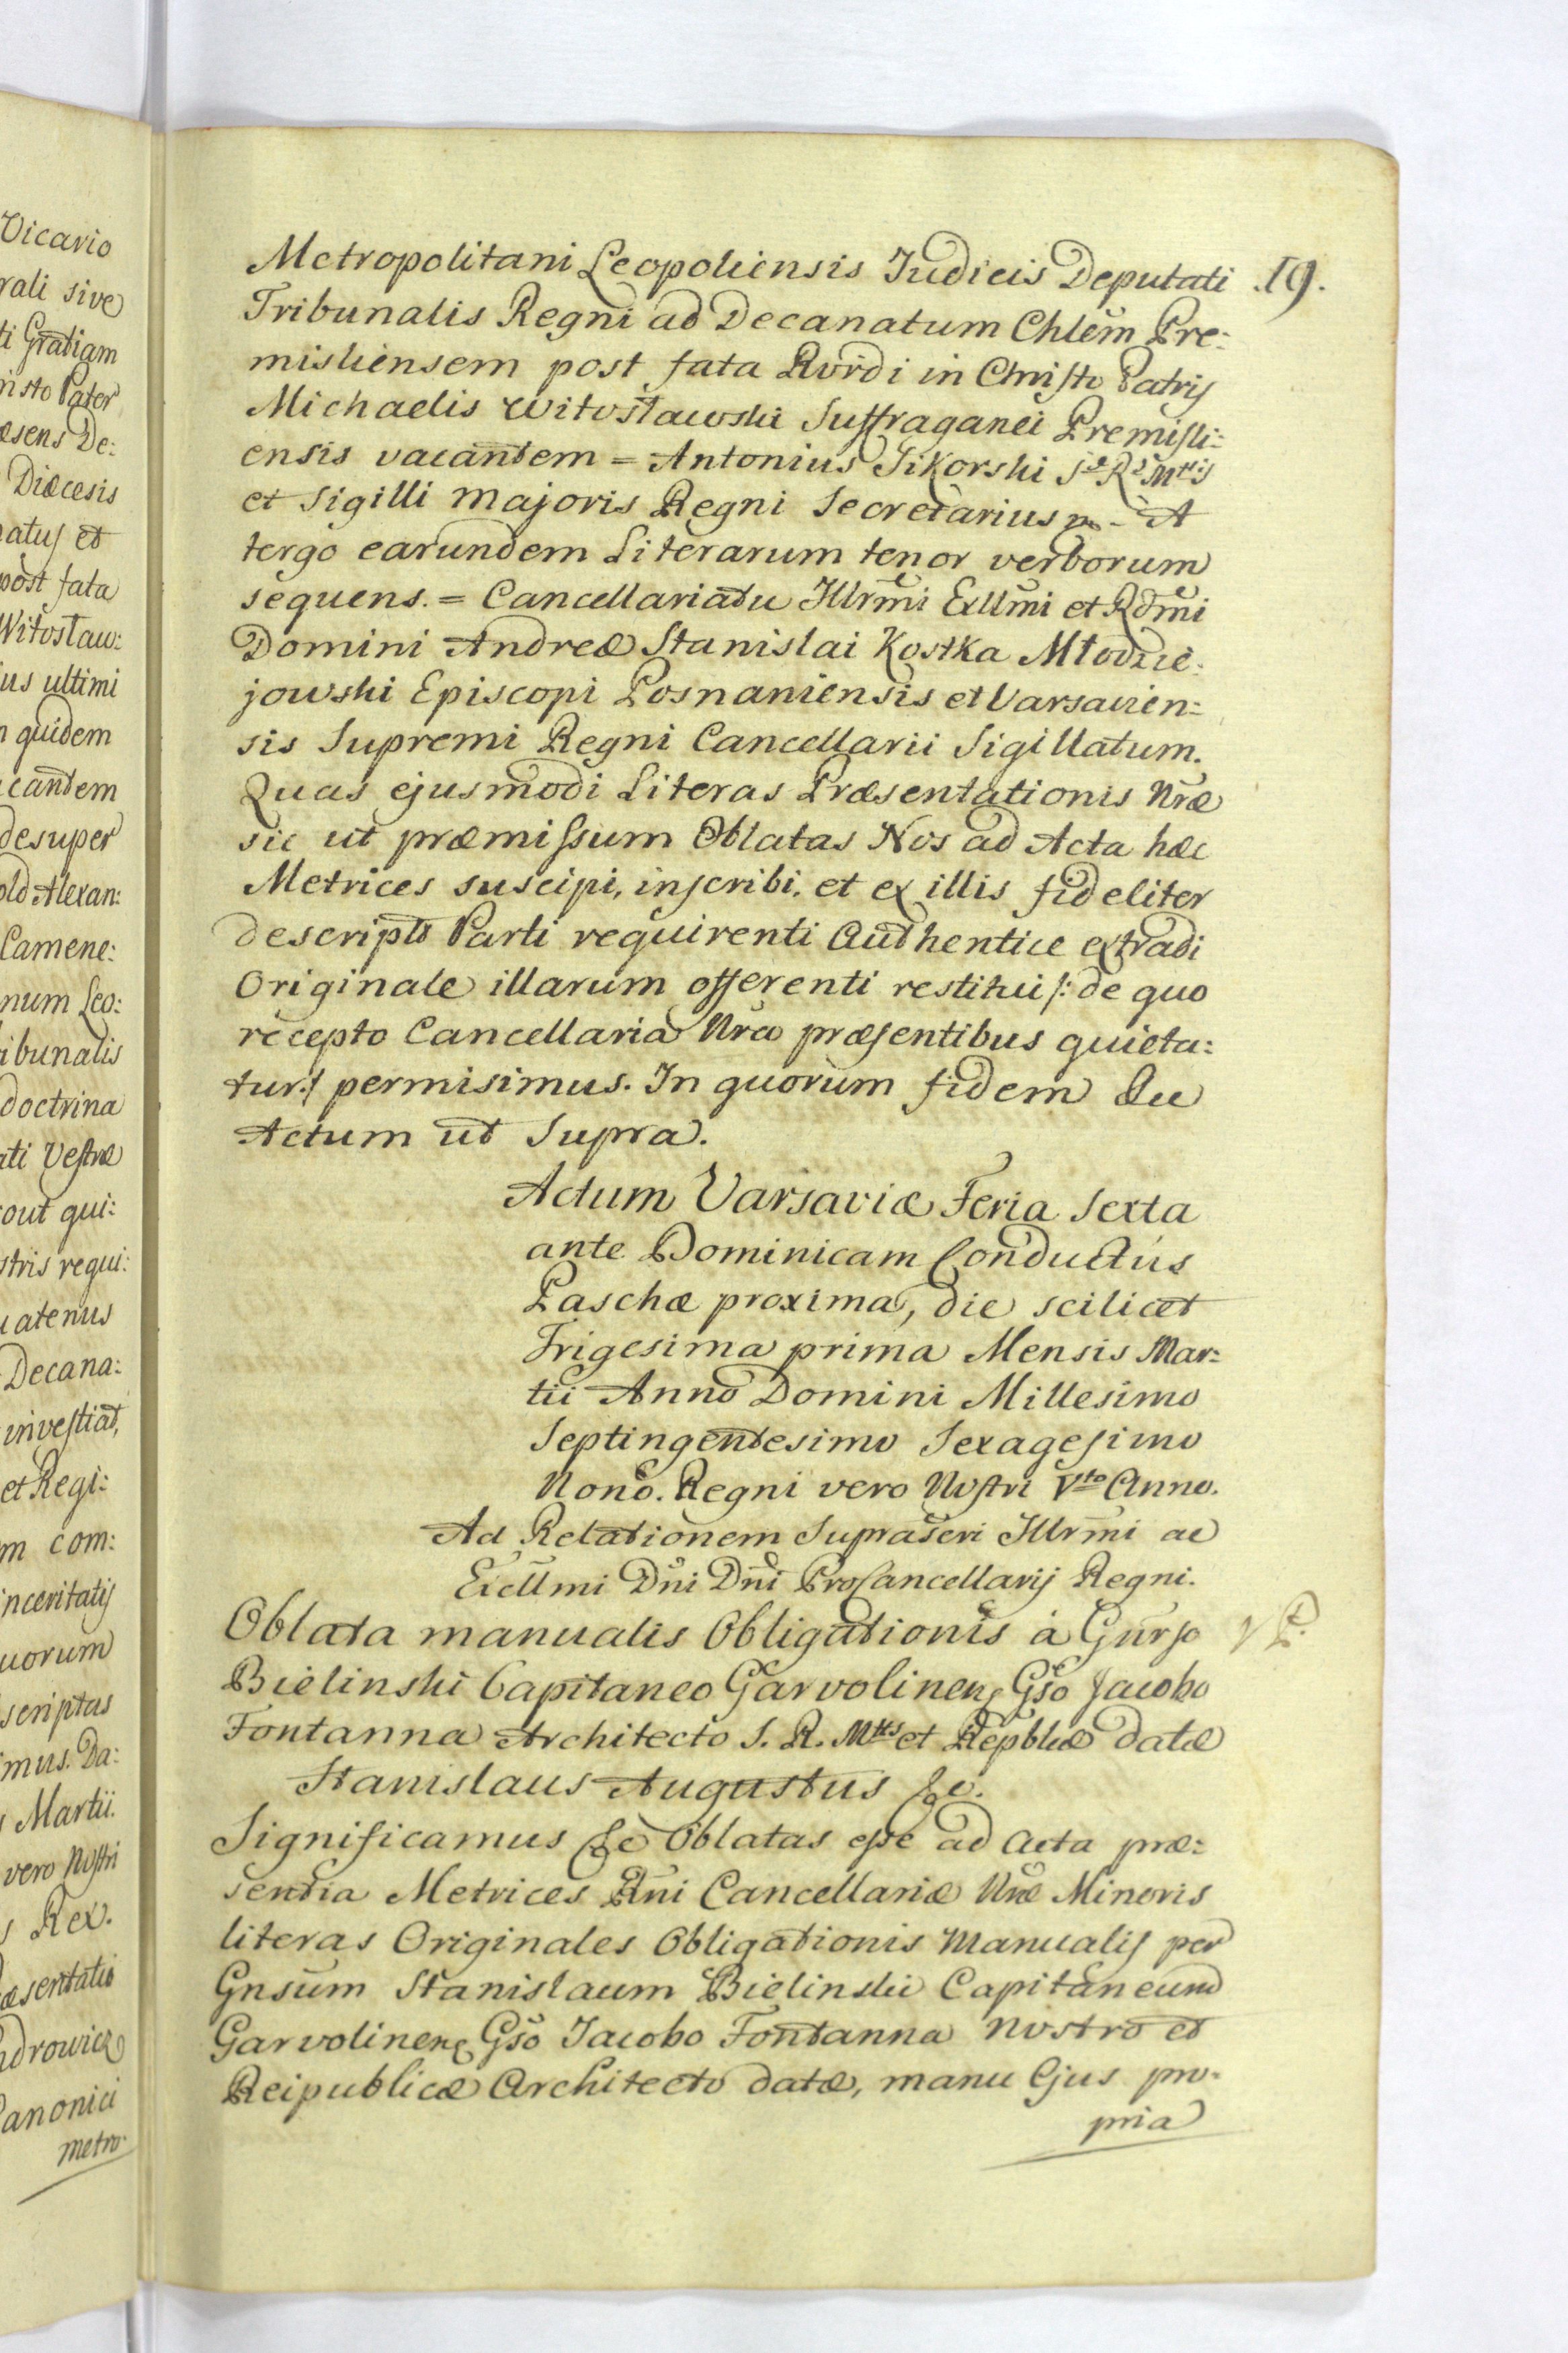 Vicario
rali sive
ti Gratiam
risto Pater
æsens De:
Diæcesis
natus et
post fata
Witosław:
ius ultimi
n quidem
acantem
desuper
old Alexan:
Camene:
num Leo:
ribunalis
doctrina
ati Vestræ
rout qui:
stris requi:
uatenus
Decana:
investiat,
et Regi:
m com:
inceritatis
uorum
scriptus
imus. Da:
s Martii.
vero Nostri
s Rex.
æsentatio
ndrowicz
Canonici
metro:
19.
Metropolitani Leopoliensis Judicis Deputati
Tribunalis Regni ad Decanatum Chlem Pre:
misliensem post fata Rvrdi in Christo Patris
Michaelis Witosławski Suffraganei Premisli:
ensis vacantem = Antonius Sikorski S. R. Mtis
et Sigilli Majoris Regni Secretarius - A
tergo earundem Literarum tenor verborum
sequens. = Cancellariatu Illrmi Exllmi et Rdmi
Domini Andreæ Stanislai Kostka Młodzie:
jowski Episcopi Posnaniensis et Varsavien:
sis Supremi Regni Cancellarii Sigillatum.
Quas ejusmodi Literas Præsentationis Nræ
sic ut præmissum Oblatas Nos ad Acta hæc
Metrices suscipi, inscribi, et ex illis fideliter
descripto Parti requirenti Authentice extradi
Originale illarum offerenti restitui /: de quo
recepto Cancellaria Nra præsentibus quieta:
tur :/ permisimus. In quorum fidem &c
Actum ut Supra.
Actum Varsaviæ Feria Sexta
ante Dominicam Conductus
Paschæ proxima, die scilicet
Trigesima prima Mensis Mar:
tii Anno Domini Millesimo
Septingentesimo Sexagesimo
Nono. Regni vero Nostri Vto Anno.
Ad Relationem Suprascri Illrmi ac
Excllmi Dni Dni ProCancellarij Regni.
Oblata manualis Obligationis à Gnrso
Bielinski Capitaneo Garvolinen Gso Jacobo
Fontanna Architecto S. R. Mtis et Repblcæ datæ
Stanislaus Augustus &c.
Significamus &c Oblatas esse ad Acta præ:
sentia Metrices Rni Cancellariæ Nræ Minoris
literas Originales Obligationis Manualis per
Gnsum Stanislaum Bielinski Capitaneum
Garvolinen Gso Jacobo Fontanna Nostro et
Reipublicæ Architecto datæ, manu Ejus pro:
pria